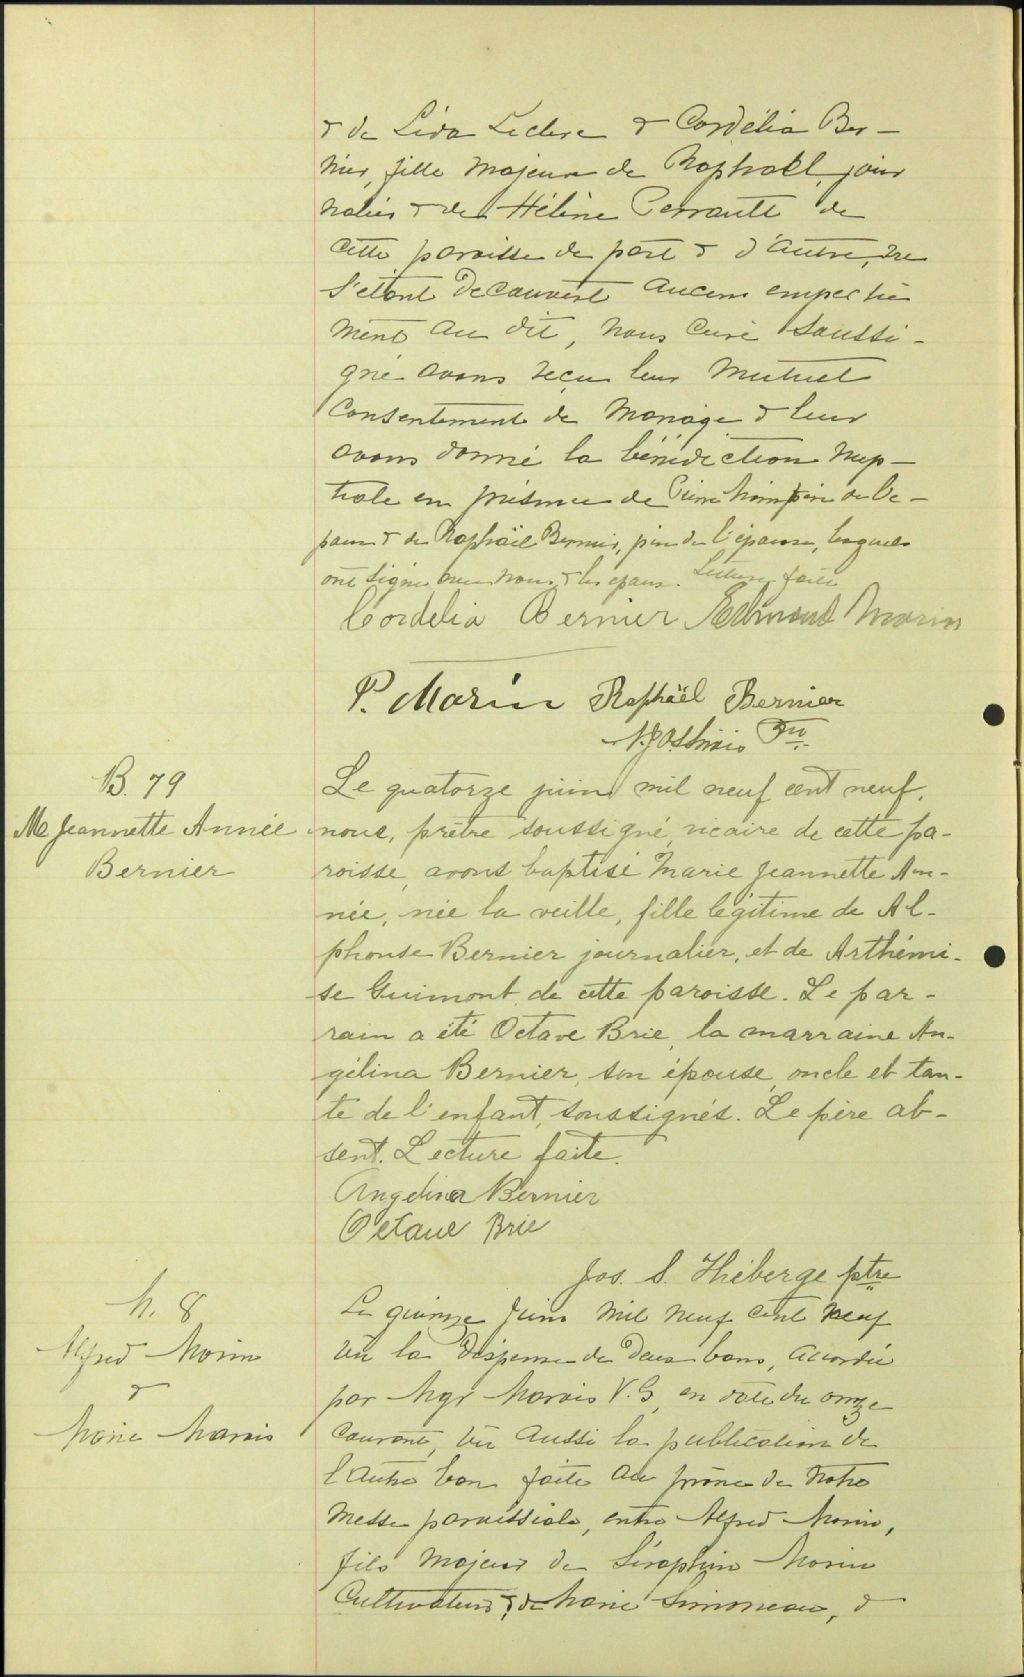 & de Léda Leclerc & Cordélia Ber-
nier, fille majeure de Raphaël, jour
nalier & de Hélène Perrault de
cette paroisse de part & d'autre, ne
s'étant découvert aucun empêche
ment au dit, nous curé soussi-
gné avons reçu leur mutuel
consentement de mariage & leur
avons donné la bénédiction nup-
tiale en présence de Pierre Morin père de l'é-
poux & de Raphaël Bernier, père de l'épouse, lesquels
ont signé avec nous & les époux. Lecture faite
Cordelia Bernier Edmond Morin
P. Marin Raphaël Bernier
Ptre
B. 79
Me Jeannette Année
Bernier
Le quatorze juin mil neuf cent neuf,
nous, prêtre soussigné, vicaire de cette pa-
roisse, avons baptisé Marie Jeannette An-
née, née la veille, fille légitime de Al-
phonse Bernier journalier, et de Arthémi-
se Guimont de cette paroisse. Le par-
rain a été Octave Brie, la marraine An-
gélina Bernier, son épouse, oncle et tan-
te de l'enfant, soussignés. Le père ab-
sent. Lecture faite.
Angelina Bernier
Octave Brie
Jos. S. Théberge ptre
M. 8
Alfred Morin
&
Marie Marois
Le quinze Juin mil neuf cent neuf
Vu la dispense de deux bans, accordée
par Mgr Marois V.G, en date du onze
courant, vu aussi la publication de
l'autre ban faite au prône de notre
messe paroissiale, entre Alfred Morin,
fils majeur de Séraphin Morin
Cultivateur, & de Marie Simoneau, &